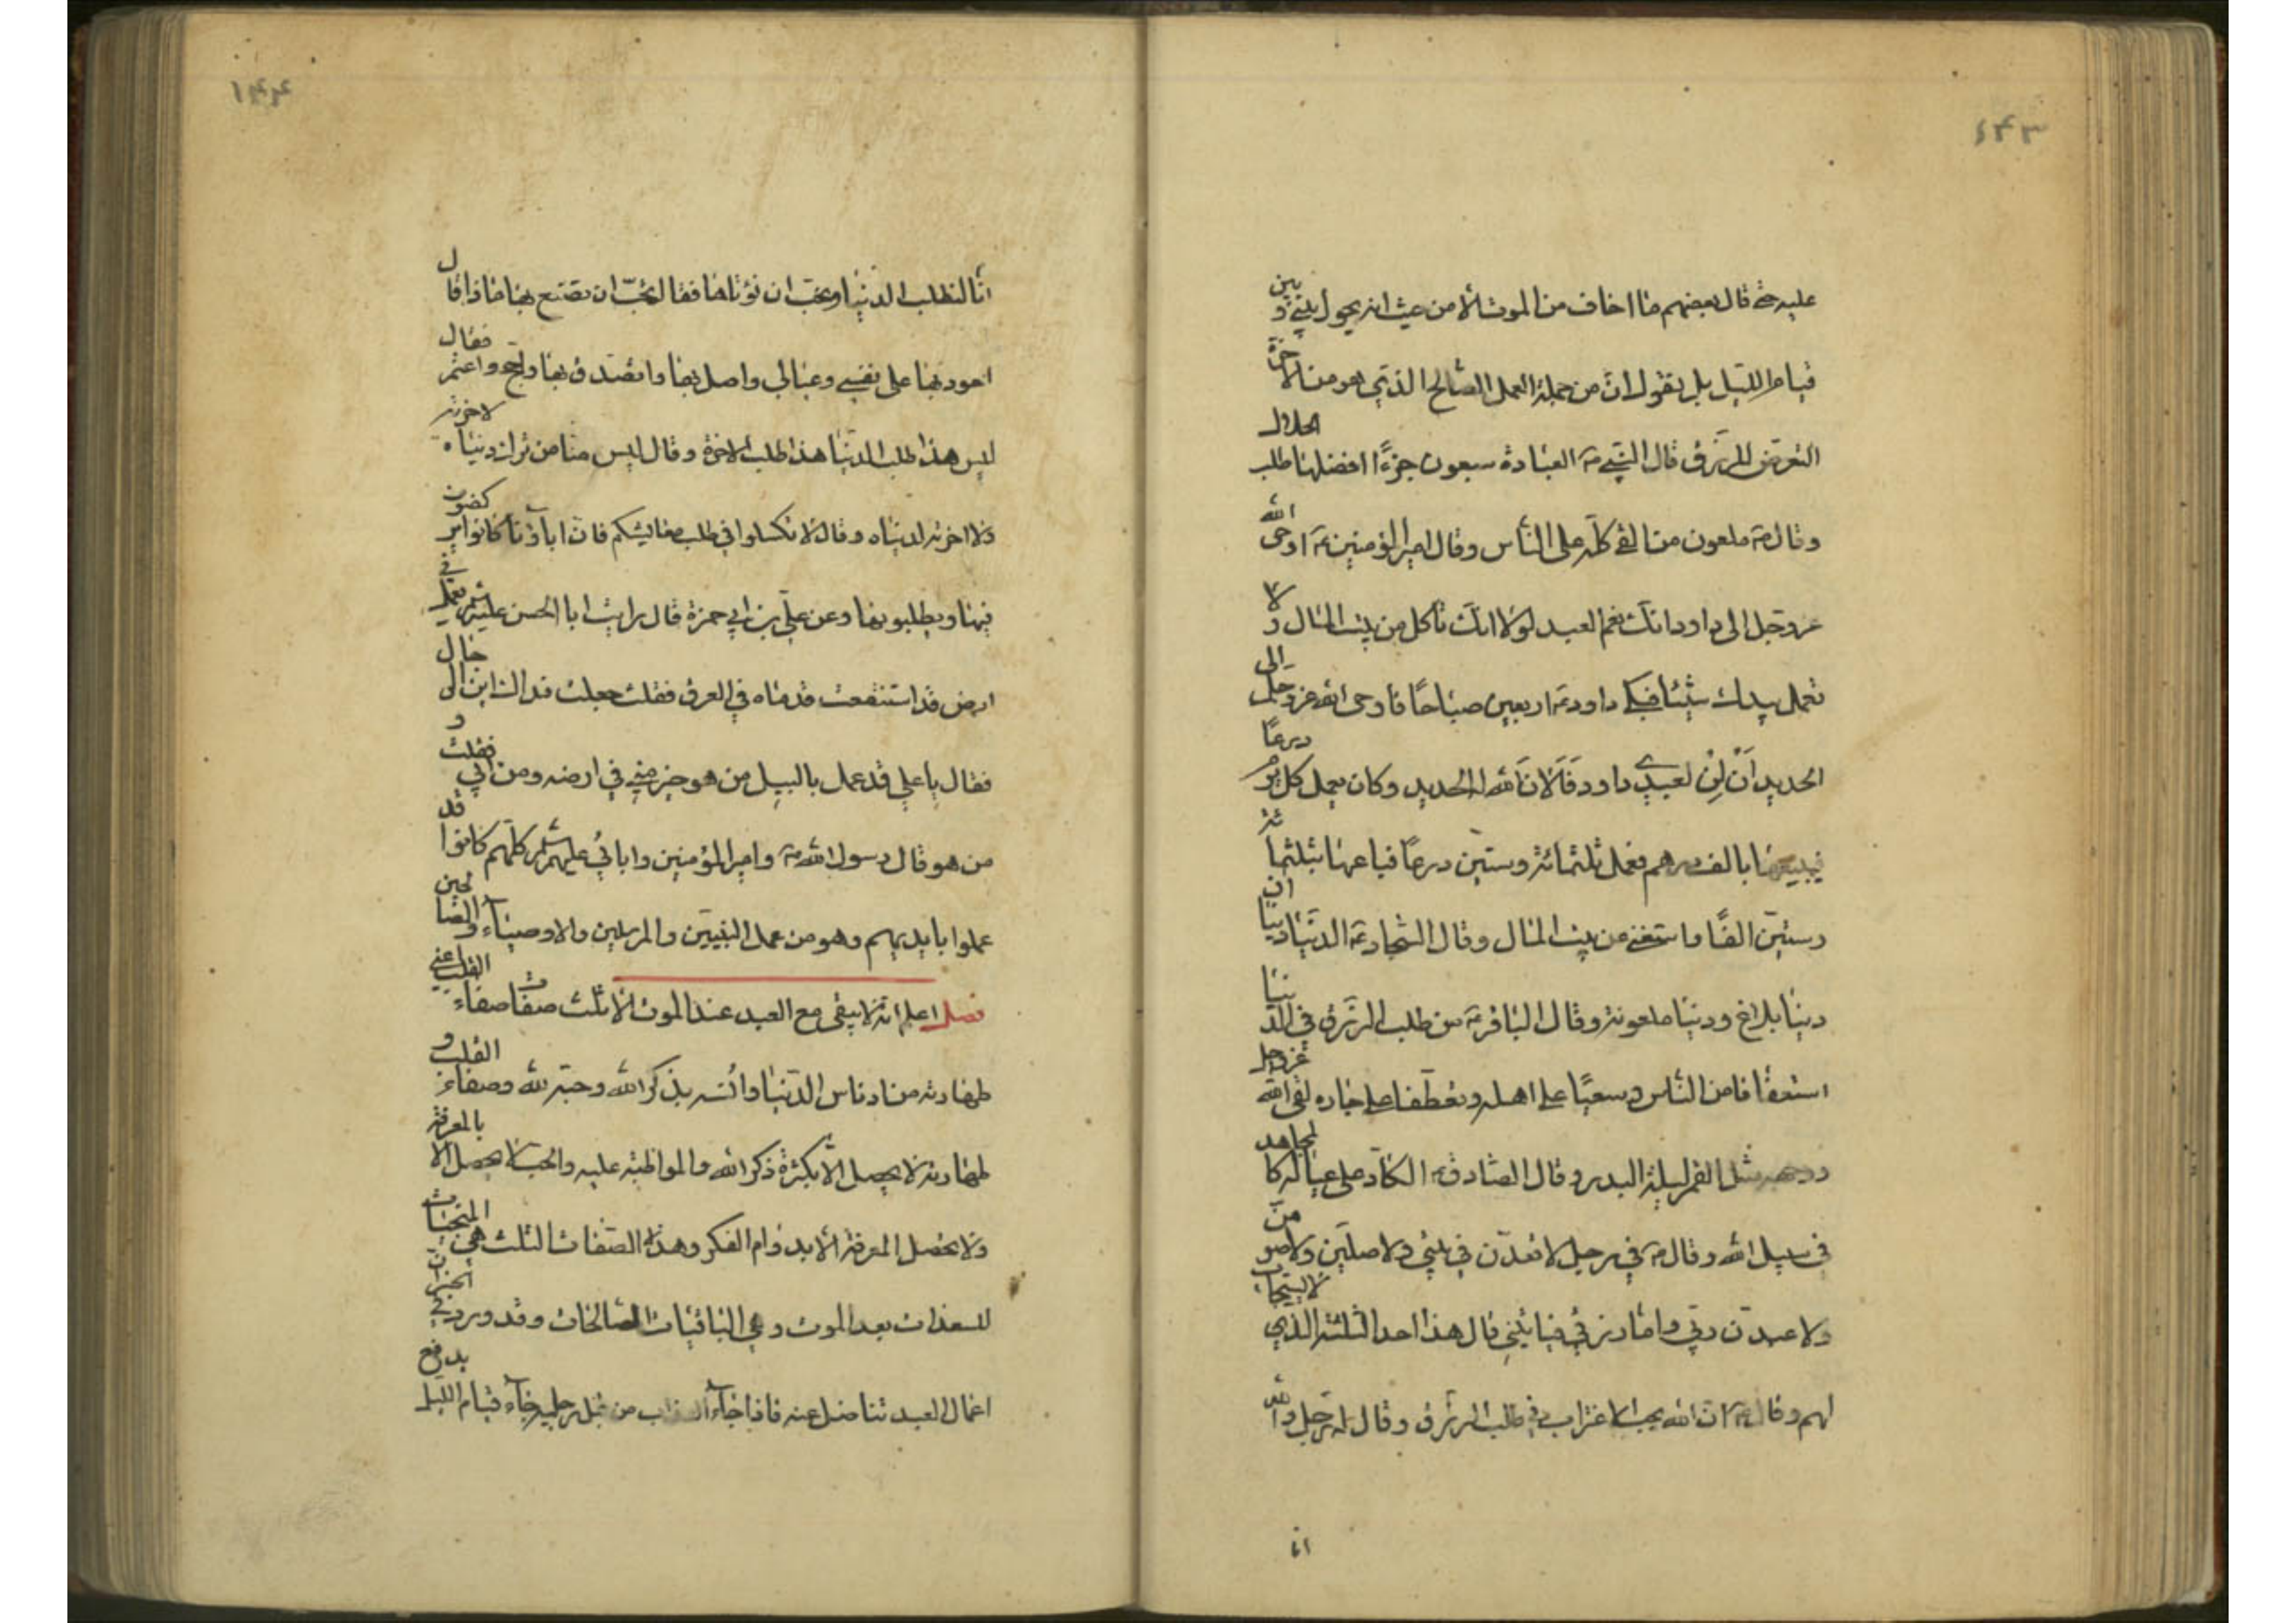 ۱۴۳
عليه حتى قال بعضهم ما اخاف من الموت الا من حيث انه يحول بيني و بين
قيام الليل بل يقول ان من جملة العمل الصالح الذي هو من الاخرة
التعرض للرزق قال النبي ص العبادة سبعون جزءًا افضلها طلب الحلال
وقال ص ملعون من القى كله على الناس وقال امير المؤمنين ع اوحى الله
عزوجل الى داود انك نعم العبد لولا انك تاكل من بيت المال و لا
تعمل بيدك شيئا فبكى داود ع اربعين صباحًا فاوحى الله عزوجل الى
الحديد أن لِن لعبدي داود فَألانَ الله له الحديد وكان يعمل كل يوم درعًا
فيبيعها بالف درهم فعمل ثلثمائة وستين درعًا فباعها بثلثمائة
وستين الفًا واستغنى عن بيت المال وقال السجاد ع الدنيا دنياان
دنيا بلاغ ودنيا ملعونة وقال الباقر ع من طلب الرزق في الدنيا
استعفافا من الناس وسعيًا على اهله وتعطفا على جاره لقى الله عزوجل
ووجهه مثل القمر ليلة البدر وقال الصادق ع الكاد على عياله كالمجاهد
في سبيل الله وقال ع في رجل لاقعدن في بيتي ولاصلين ولاصومن
ولاعبدن ربي واما رزقي فياتيني قال هذا احد الثلثة الذي لا يستجاب
لهم وقال ع ان الله يحب الاغتراب في طلب الرزق وقال له رجل والله
انا
۱۴۴
انا لنطلب الدنيا ونحب ان نؤتاها فقال تحب ان تصنع بها ماذا قال
اعود بها على نفسي وعيالي واصل بها واتصدق بها واحج واعتمر فقال
ليس هذا طلب الدنيا هذا طلب الاخرة وقال ليس منا من ترك دنياه لاخرته
ولا اخرته لدنياه وقال لا تكسلوا في طلب معايشكم فان اباؤنا كانوا يركضون
فيها ويطلبونها وعن علي بن ابي حمزة قال رايت ابا الحسن عليه السلم يعمل في
ارض قد استنقعت قدماه في العرق فقلت جعلت فداك اين الرجال
فقال يا علي قد عمل بالبيل من هو خير مني في ارضه ومن ابي فقلت و
من هو قال رسول الله ص وامير المؤمنين واباني عليهم السلم كلهم كانوا قد
عملوا بايديهم وهو من عمل النبيين والمرسلين والاوصياء والصالحين
فصل اعلم انه لا يبقى مع العبد عند الموت الا ثلث صفات صفاء القلب اعني
طهارته من ادناس الدنيا وانسه بذكر الله وحبه لله وصفاء القلب و
طهارته لا يحصل الا بكثرة ذكر الله والمواظبة عليه والحب لا يحصل الا بالمعرفة
ولا تحصل المعرفة الا بدوام الفكر وهذه الصفات الثلث هي المنجيات
للسعدات بعد الموت وهي الباقيات الصالحات وقد ورد في الخبر ان
اعمال العبد تناضل عنه فاذا جاء العذاب من قبل رجليه جاء قيام الليل يدفع